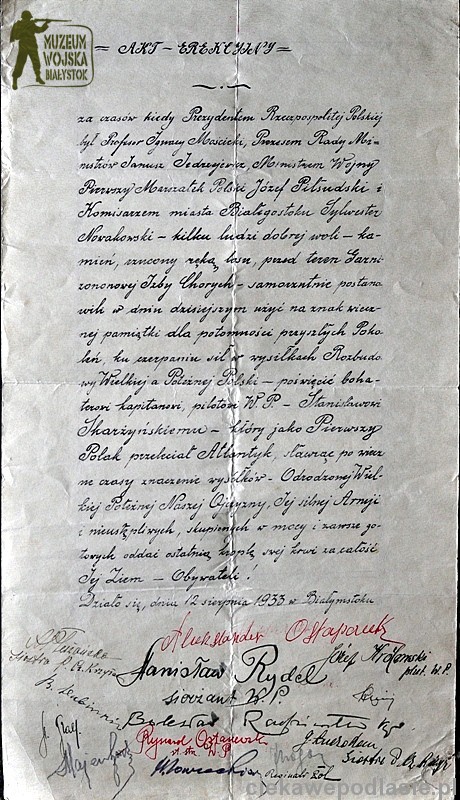 MUZEUM
WOJSKA
BIAŁYSTOK
= AKT - EREKCYJNY =
za czasów kiedy Prezydentem Rzeczpospolitej Polskiej
był Profesor Ignacy Mościcki, Prezesem Rady Mi-
nistrów Janusz Jędrzejewicz, Ministrem Wojny
Pierwszy Marszałek Polski Józef Piłsudski i
Komisarzem miasta Białegostoku Sylwester
Nowakowski - kilku ludzi dobrej woli - ka-
mień, rzucony ręką losu, przed teren Garni-
zonowej Izby Chorych - samorzutnie postana
wili w dniu dzisiejszym użyć na znak wiecz-
nej pamiątki dla potomności przyszłych Poko-
leń, ku czerpaniu sił w wysiłkach Rozbudo
wy Wielkiej a Potężnej Polski - poświęcić boha-
terowi kapitanowi, pilotowi W.P. - Stanisławowi
Skarżyńskiemu - który jako Pierwszy
Polak przeleciał Atlantyk, sławiąc po wiecz
ne czasy znaczenie wysiłków - Odrodzonej Wiel-
kiej Potężnej Naszej Ojczyzny, Jej silnej Armji
i nieustępliwych, skupionych w mocy i zawsze go-
towych oddać ostatnią kroplę swej krwi za całość
Jej Ziem - Obywateli!
Działo się, dnia 12 sierpnia 1933 w Białymstoku
Aleksander
Siostra P. Cz. Krzyża
Stanisław Rydel
plut. W.P.
sierżant W.P.
Bolesław
Ryszard
st. sierż. W.P.
Siostra
ciekawepodlasie.pl